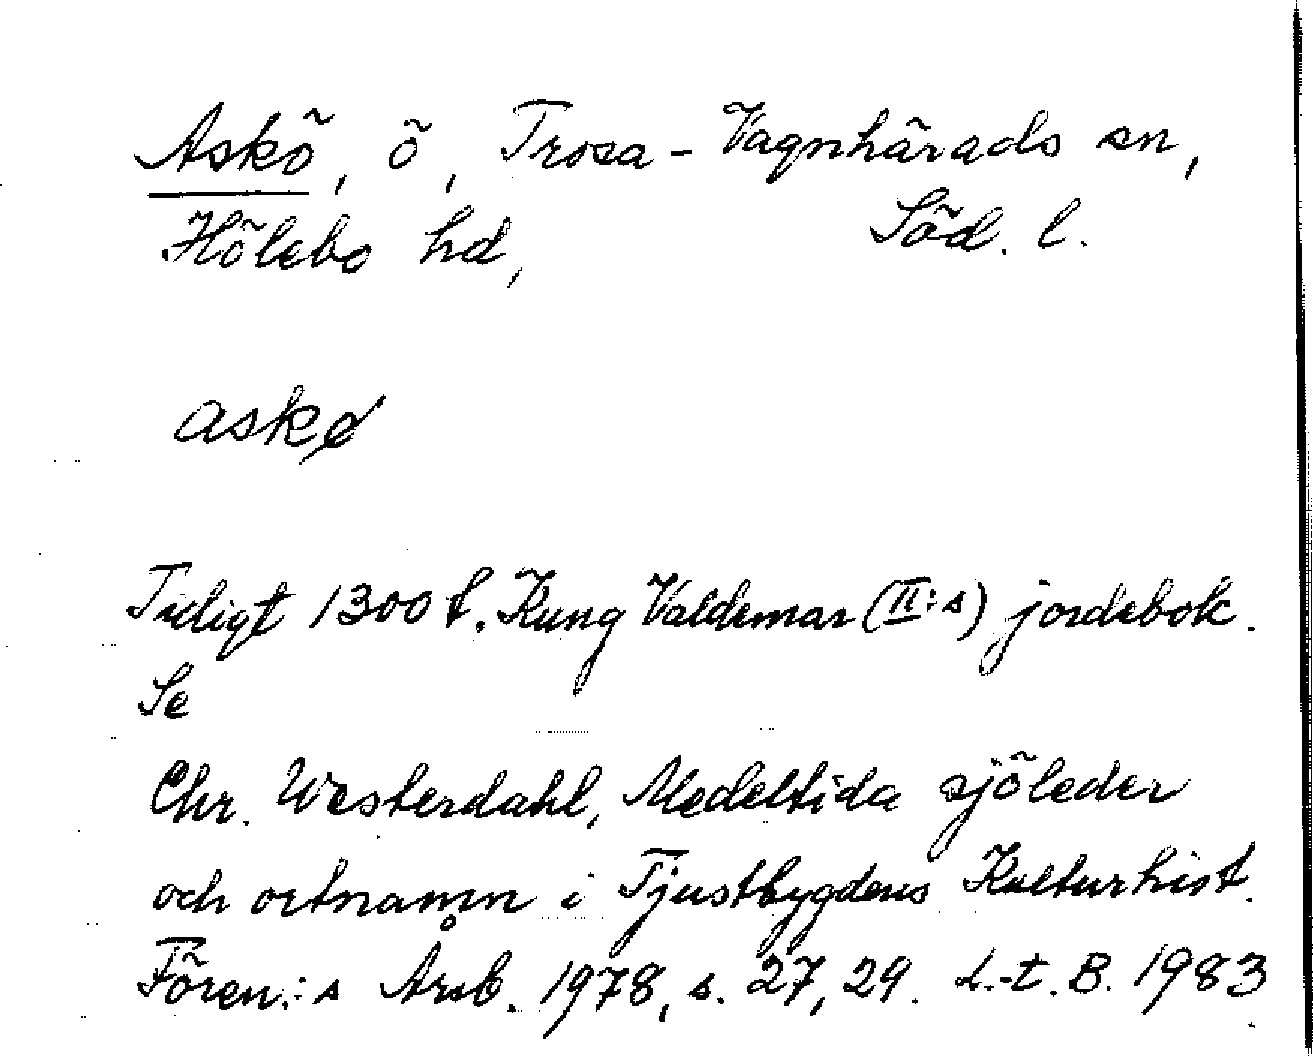 Askö, ö, Trosa-Vagnhärads sn,
Hölebo hd, Söd. l.
askø
Tidigt 1300 t. Kung Valdemar (II:s) jordebok.
Se
Chr. Westerdahl, Medeltida sjöleder
och ortnamn i Tjustbygdens Kulturhist.
Fören.:s Årsb. 1978, s. 27, 29. L.-t. B. 1983